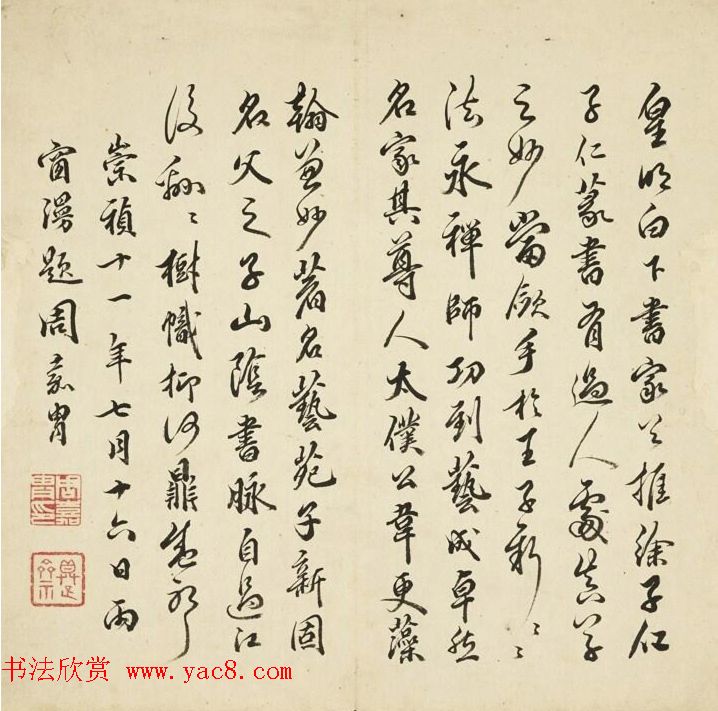 皇明白下書家公推徐子仁
子仁篆書有過人處真草
之妙當斂手於王子新〻〻
法永禪師功到藝成卓然
名家其尊人太僕公韋更藻
翰兼妙著名藝苑子新固
名父之子山陰書脉自過江
後〻樹幟抑何鼎盛耶
崇禎十一年七月十六日雨
窗漫題周嘉胄
周嘉胄印
书法欣赏 www.yac8.com